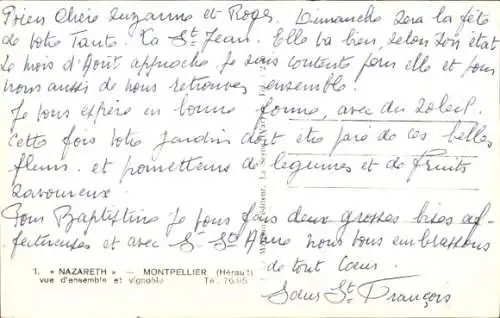 Bien Chère Suzanne et Roger. Dimanche sera la fête
de votre Tante. La St Jean. Elle va bien, selon son état
Le mois d'Août approche, je suis contente pour elle et pour
nous aussi de nous retrouver ensemble.
Je vous espère en bonne forme, avec du soleil.
Cette fois votre jardin doit être paré de ces belles
fleurs. et prometteur de légumes et de fruits
savoureux.
Pour Baptistine je vous fais deux grosses bises af-
fectueuses et avec Sr St Anne nous vous embrassons
de tout cœur.
Sœur St François
1. « NAZARETH » — MONTPELLIER (Hérault)
vue d'ensemble et vignoble Tél. 76-95